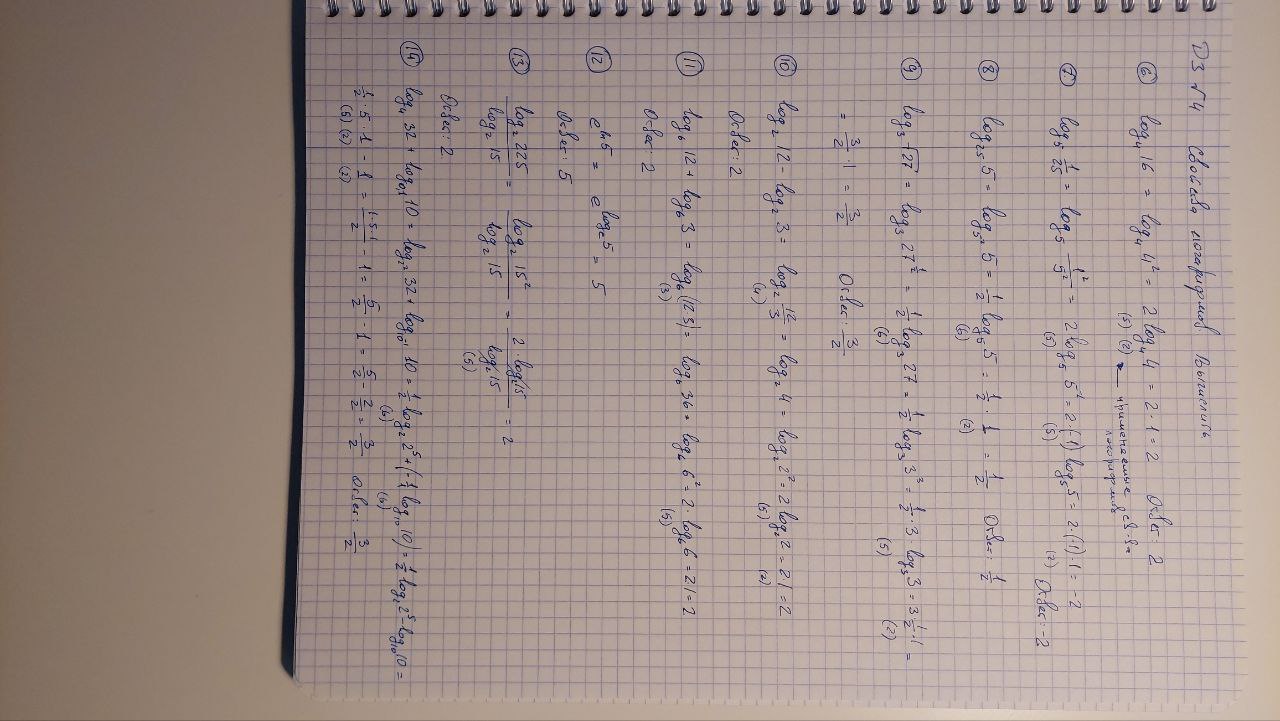 ДЗ №4 Свойства логарифмов. Вычислить
⑥ log₄ 16 = log₄ 4² = 2 log₄ 4 = 2 · 1 = 2 Ответ: 2
(5) (2) ← применяемые св-ва
логарифмов
⑦ log₅ 1/25 = log₅ 1²/5² = 2 log₅ 5⁻¹ = 2·(-1) log₅ 5 = 2·(-1)·1 = -2
(5) (5) (2) Ответ: -2
⑧ log₂₅ 5 = log₅² 5 = 1/2 log₅ 5 = 1/2 · 1 = 1/2 Ответ: 1/2
(6) (2)
⑨ log₃ √27 = log₃ 27^(1/2) = 1/2 log₃ 27 = 1/2 log₃ 3³ = 1/2 · 3 · log₃ 3 = 3 · 1/2 · 1 =
(6) (5) (2)
= 3/2 · 1 = 3/2 Ответ: 3/2
⑩ log₂ 12 - log₂ 3 = log₂ 12/3 = log₂ 4 = log₂ 2² = 2 log₂ 2 = 2·1 = 2
(4) (5) (2)
Ответ: 2
⑪ log₆ 12 + log₆ 3 = log₆ (12·3) = log₆ 36 = log₆ 6² = 2 · log₆ 6 = 2·1 = 2
(3) (5)
Ответ: 2
⑫ e^(ln 5) = e^(logₑ 5) = 5
Ответ: 5
⑬ log₂ 225 / log₂ 15 = log₂ 15² / log₂ 15 = 2 · log₂ 15 / log₂ 15 = 2
(5)
Ответ: 2
⑭ log₄ 32 + log₀,₁ 10 = log₂² 32 + log₁₀⁻¹ 10 = 1/2 log₂ 2⁵ + (-1/1 log₁₀ 10) = 1/2 log₂ 2⁵ - log₁₀ 10 =
(6) (6)
1/2 · 5 · 1 - 1 = 1·5·1/2 - 1 = 5/2 - 1 = 5/2 - 2/2 = 3/2 Ответ: 3/2
(5) (2) (2)